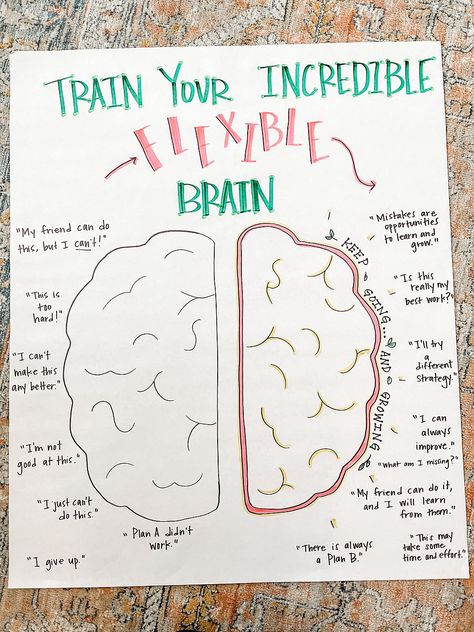 TRAIN YOUR INCREDIBLE
FLEXIBLE
BRAIN
"My friend can do
this, but I can't!"
"This is
too
hard!"
"I can't
make this
any better."
"I'm not
good at this."
"I just can't
do this."
"Plan A didn't
work."
"I give up."
KEEP GOING... AND GROWING
"Mistakes are
opportunities
to learn and
grow."
"Is this
really my
best work?"
"I'll try
a
different
strategy."
"I can
always
improve."
"What am I missing?"
"My friend can do it,
and I will learn
from them."
"There is always
a Plan B."
"This may
take some
time and effort."